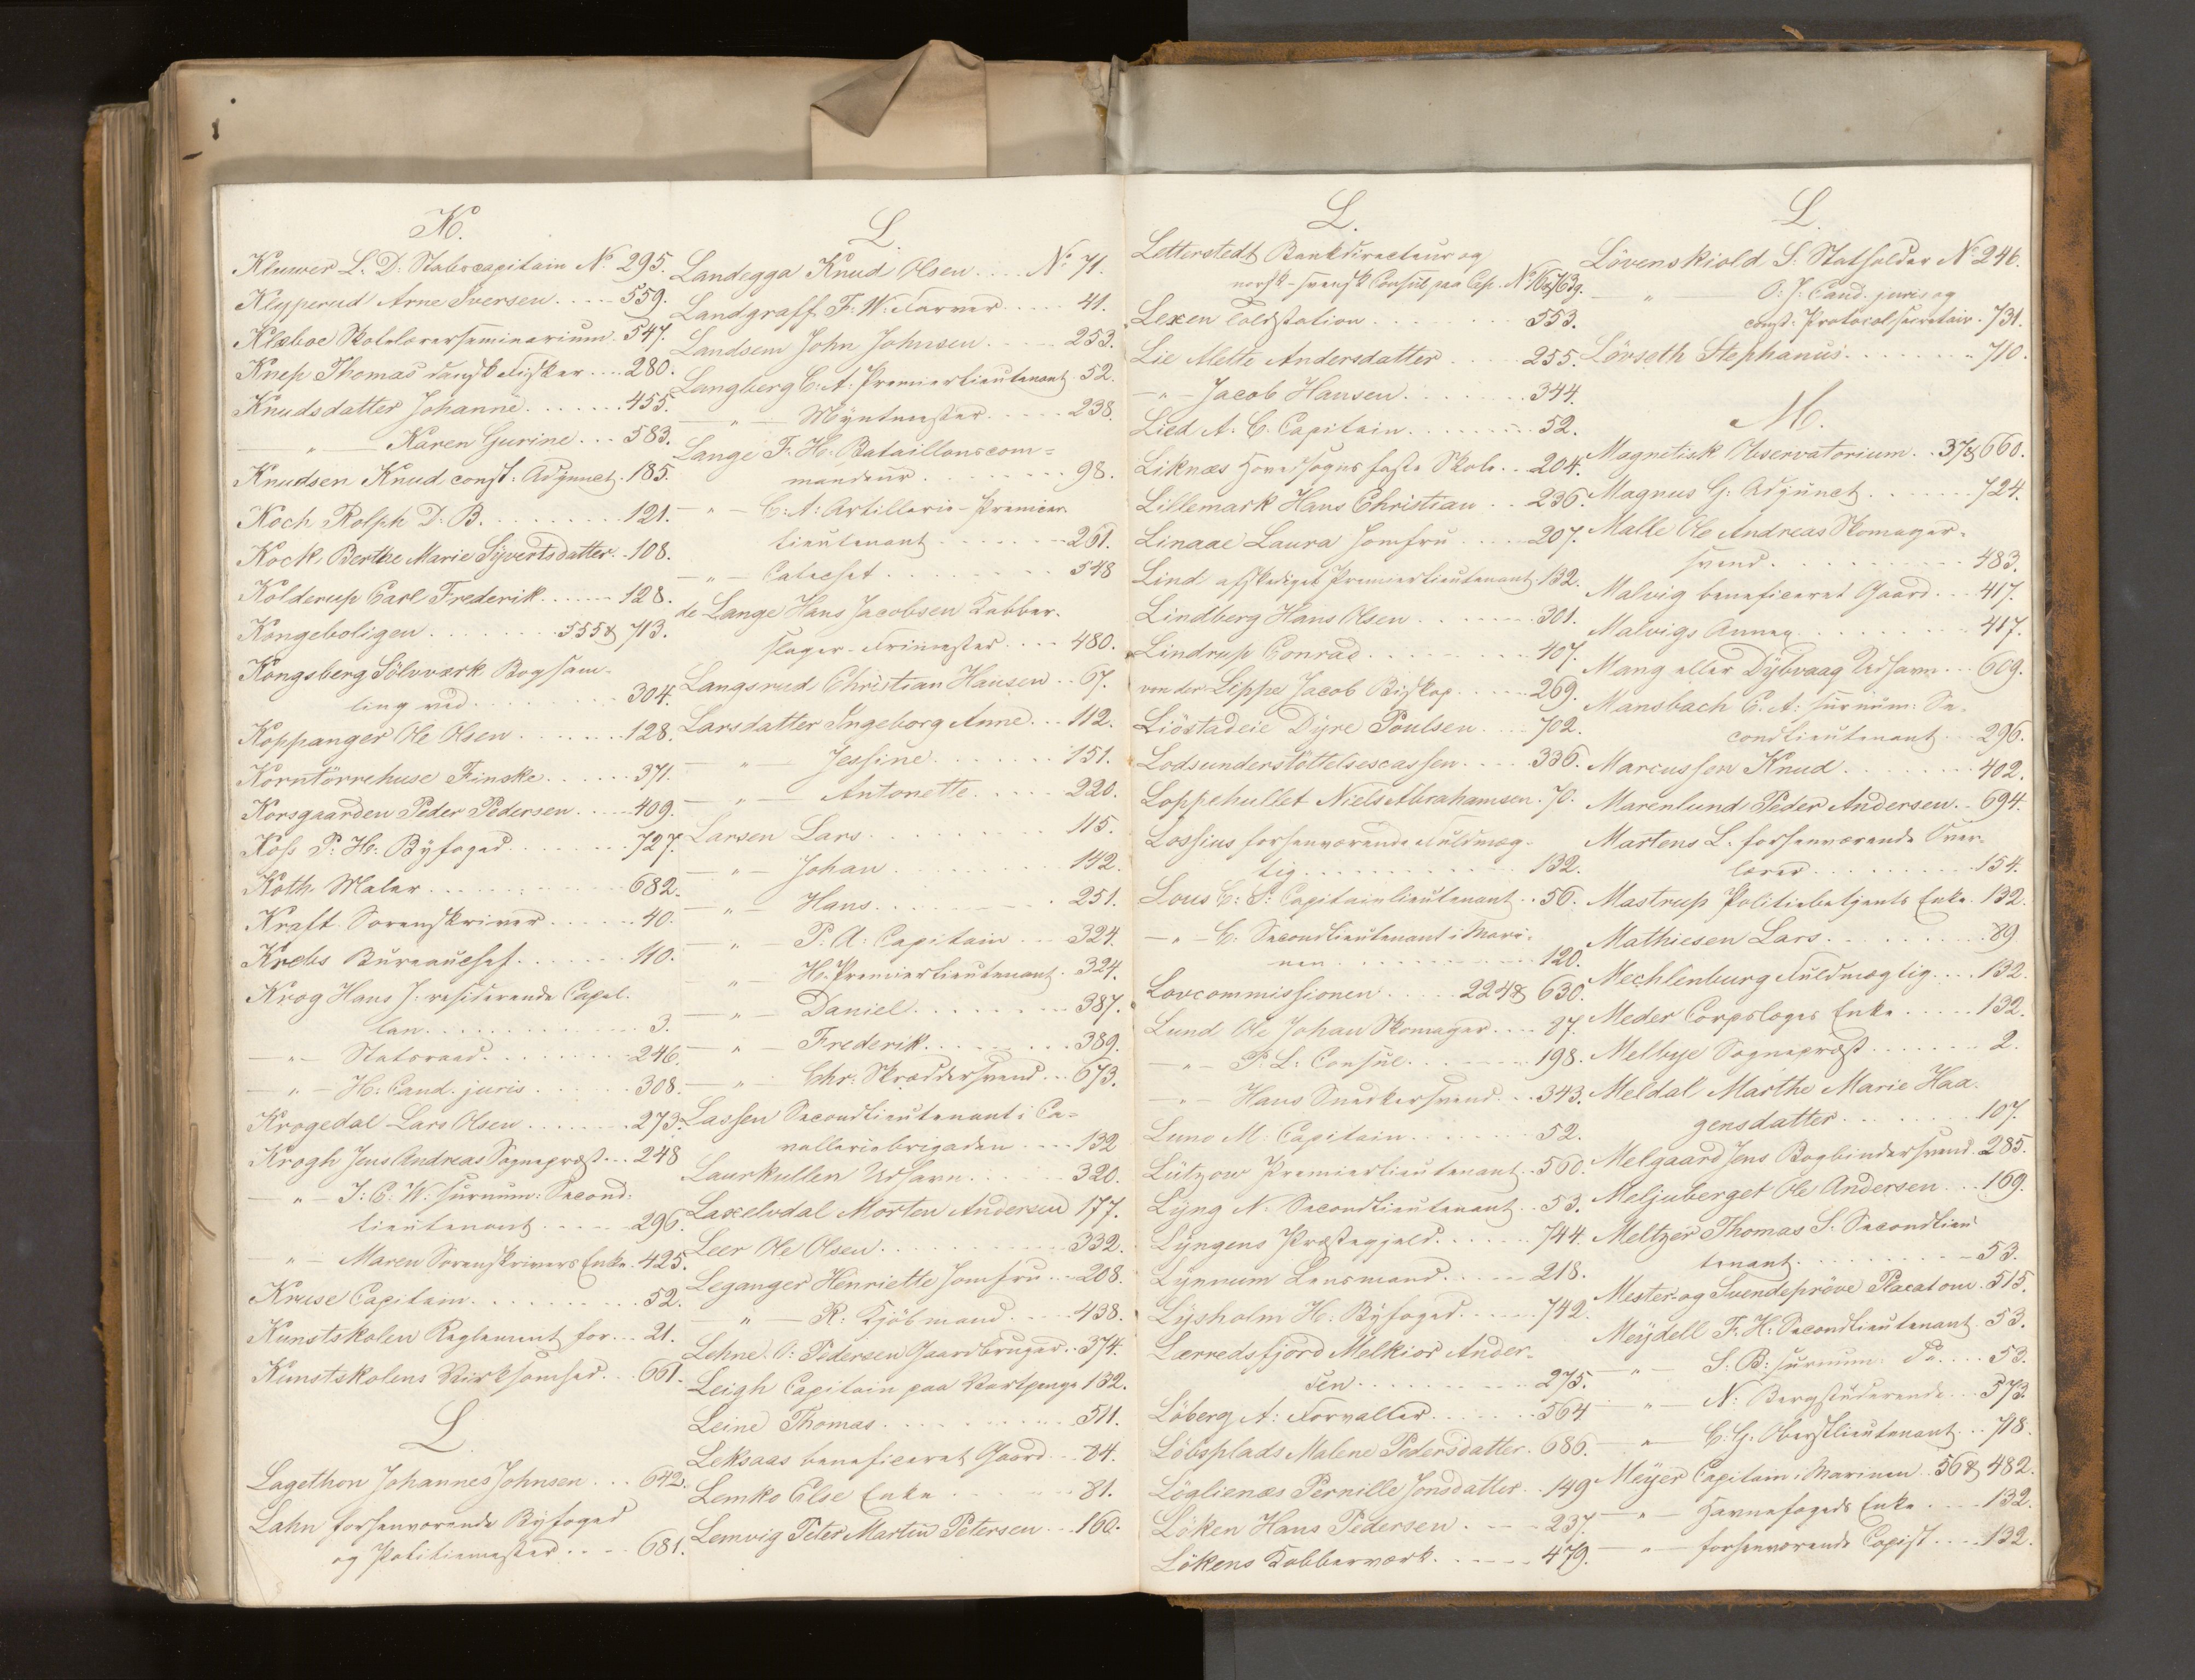 K.
Kluwer L. D. Stabscapitain No. 295.
Klypperud Arne Iversen . . . . 559.
Klæboe Skolelærerseminarium. 547.
Knep Thomas dansk Fisker . . . 280.
Knudsdatter Johanne . . . . . . 455.
— " — Karen Gurine . . . 583.
Knudsen Knud const: Adjunct. 185.
Koch Rolph D. B. . . . . . . . . 121.
Kock Berthe Marie Syvertsdatter . 108.
Kolderup Carl Frederik . . . . . 128.
Kongeboligen . . . . . . . 555 & 713.
Kongsberg Sölvværk Bogsam-
ling ved . . . . . . . . . 304.
Koppanger Ole Olsen . . . . . . 128.
Korntörrehuse Finske . . . . . 371.
Korsgaarden Peder Pedersen . . . 409.
Koss P. H. Byfoged . . . . . . . 727.
Koth Maler . . . . . . . . . . 682.
Kraft Sorenskriver . . . . . . 40.
Krebs Büreauchef . . . . . . . 110.
Krog Hans J. residerende Capel-
lan . . . . . . . . . . . 3.
— " — Statsraad . . . . . . . 246.
— " — H. Cand. juris . . . . . 308.
Krogedal Lars Olsen . . . . . . 273.
Krogh Jens Andreas Sognepræst . . 248
— " — J. C. W. surnum: Second-
lieutenant . . . . . . 296.
— " — Maren Sorenskrivers Enke . 425.
Kruse Capitain . . . . . . . . 52.
Kunstskolen Reglement for . . . 21.
Kunstskolens Virksomhed . . . 661.
L
Lagethon Johannes Johnsen . . . 642.
Lahn forhenværende Byfoged
og Politiemester . . . . 681.
L.
Landegga Knud Olsen . . . . No. 71.
Landgraff F. W. Farver . . . . 41.
Landsem John Johnsen . . . . . 253.
Langberg C. A. Premierlieutenant . 52.
— " — Myntmester . . . . . 238.
Lange F. H. Bataillonscom=
mandeur . . . . . . . . 98.
— " — C. A. Artillerie-Premier-
lieutenant . . . . . . . 261.
— " — Catechet . . . . . . . . 548
de Lange Hans Jacobsen Kobber-
slager-Frimester . . . . 480.
Langsrud Christian Hansen . . 67.
Larsdatter Ingeborg Anne . . . 112.
— " — Jessine . . . . . . . 151.
— " — Antonette . . . . . 220.
Larsen Lars . . . . . . . . . . 115.
— " — Johan . . . . . . . . 142.
— " — Hans . . . . . . . . . 251.
— " — P. A. Capitain . . . 324.
— " — H. Premierlieutenant . 324.
— " — Daniel . . . . . . . . 387.
— " — Frederik . . . . . . . 389.
— " — Chr. Skræddersvend . . 673.
Lassen Secondlieutenant i Ca=
valleriebrigaden . . . . 132
Laurkullen Udhavn . . . . . . 320.
Laxelvdal Morten Andersen 177.
Leer Ole Olsen . . . . . . . . . 332.
Leganger Henriette Jomfru . . . 208.
— " — R. Kjöbmand . . . . 438.
Lehne O. Pedersen Gaardbruger . . 374.
Leigh Capitain paa Vartpenge 132.
Leine Thomas . . . . . . . . . 511.
Leksaas beneficeret Gaard . . . 84.
Lemko Else Enke . . . . . . 81.
Lemvig Peter Martin Petersen . . 160.
L.
Letterstedt Bankdirecteur og
norsk-svensk Consul paa Cap. No.
Lexen Toldstation . . . . . . . 553.
Lie Mette Andersdatter . . . . 255.
— " — Jacob Hansen . . . . . . 344.
Lied A. C. Capitain . . . . . . 52.
Liknæs Hovedsogns faste Skole . . 204.
Lillemark Hans Christian . . 236.
Linaae Laura Jomfru . . . . . 207.
Lind afskediget Premierlieutenant . 132.
Lindberg Hans Olsen . . . . . 301.
Lindrup Conrad . . . . . . . 407.
von der Lippe Jacob Biskop . . . . 269.
Liöstadeie Dyre Poulsen . . . . 702.
Lodsunderstöttelsescassen . . . . 336.
Loppehullet Niels Abrahamsen . 70.
Lossius forhenværende Fuldmæg-
tig . . . . . . . . . . . . 132.
Lous C. S. Capitainlieutenant . . 56.
— " — C. Secondlieutenant i Mari-
nen . . . . . . . . . . . 120.
Lovcommissionen . . . . . 224 & 630.
Lund Ole Johan Skomager . . . 87.
— " — P. L. Consul . . . . . . . 198.
— " — Hans Snedkersvend . . . 343.
Luno M. Capitain . . . . . . . 52.
Lützow Premierlieutenant . . 560.
Lyng N. Secondlieutenant . . 53.
Lyngens Præstegjeld . . . . . . 744.
Lynnum Lensmand . . . . . 218.
Lysholm H. Byfoged . . . . . 742.
Lærredsfjord Melkior Ander-
sen . . . . . . . . . . . 275.
Löberg A: Forvalter . . . . . . 564
Löbsplads Malene Pedersdatter . 686.
Löglienæs Pernille Jonsdatter . . 149
Löken Hans Pedersen . . . . . 237.
Lökens Kobberværk . . . . . . 479.
L.
Lövenskiold S. Statholder No. 246.
— " — O. J. Cand. juris og
const: Protocolsecretair . 731.
Lövseth Stephanus . . . . . . . . 710.
M.
Magnetisk Observatorium . . 37 & 660.
Magnus G: Adjunct . . . . . . . 724.
Malle Ole Andreas Skomager-
svend . . . . . . . . . . . . 483.
Malvig beneficeret Gaard . . . 417.
Malvigs Annex . . . . . . . . . 417.
Mang eller Dybvaag Udhavn . . . 609.
Mansbach C. A: surnum: Se-
condlieutenant . . . 296.
Marcussen Knud . . . . . . . . 402.
Marenlund Peder Andersen . . 694.
Martens L. forhenværende Over-
lærer . . . . . . . . . . 154.
Mastrup Politiebetjents Enke . 132.
Mathiesen Lars . . . . . . . . . 89
Mechlenburg Fuldmægtig . . . 132.
Meder Corpslæges Enke . . . . . 132.
Melbye Sognepræst . . . . . . . 2.
Meldal Marthe Marie Haa-
gensdatter . . . . . . . . 107.
Melgaard Jens Bogbindersvend . 285.
Meljuberget Ole Andersen . . . 169.
Meltzer Thomas S. Secondlieu-
tenant . . . . . . . . . . 53.
Mester- og Svendepröve Placat om . 515.
Meydell F. H: Secondlieutenant . 53.
— " — S. B: surnum: Do. . . . 53.
— " — N: Bergstuderende . . . 573.
— " — C. G. Oberstlieutenant . . 718.
Meyer Capitain i Marinen . . 56 & 482.
— " — Havnefogeds Enke . . . . . 132.
— " — forhenværende Copist . . . . 132.